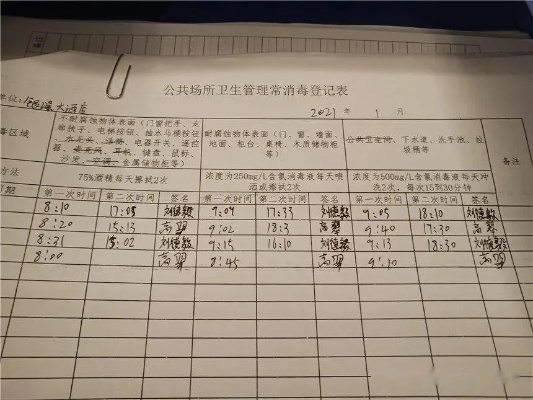 公共场所卫生管理常消毒登记表
单位: 大酒店
2021 年 1 月
毒区域
不耐腐蚀物体表面(门窗把手、走
廊扶手、电梯按钮、抽水马桶按钮
、水龙头、话筒、电器开关、遥控
器、麦克风、耳机、键盘、鼠标、
沙发、空调、金属储物柜等)
耐腐蚀物体表面(门、窗、墙面、
地面、柜台、桌椅、木质储物柜
等)
公共卫生间、下水道、洗手池、垃
圾桶等
备注
方法
75%酒精每天擦拭2次
浓度为250mg/L含氯消毒液每天喷
洒或擦拭2次
浓度为500mg/L含氯消毒液每天冲
洗2次,每次15到30分钟
日期 第一次时间 第二次时间 签名 第一次时间 第二次时间 签名 第一次时间 第二次时间 签名
8:10 17:05 刘德毅 9:04 17:33 刘德毅 9:05 18:10 刘德毅
8:20 15:13 高翠 9:02 18:3 高翠 9:40 17:30 高翠
8:31 02 刘德毅 9:15 16:10 刘德毅 9:13 18:30 刘德毅
8:00 高翠 8:45 高翠 9:10 高翠